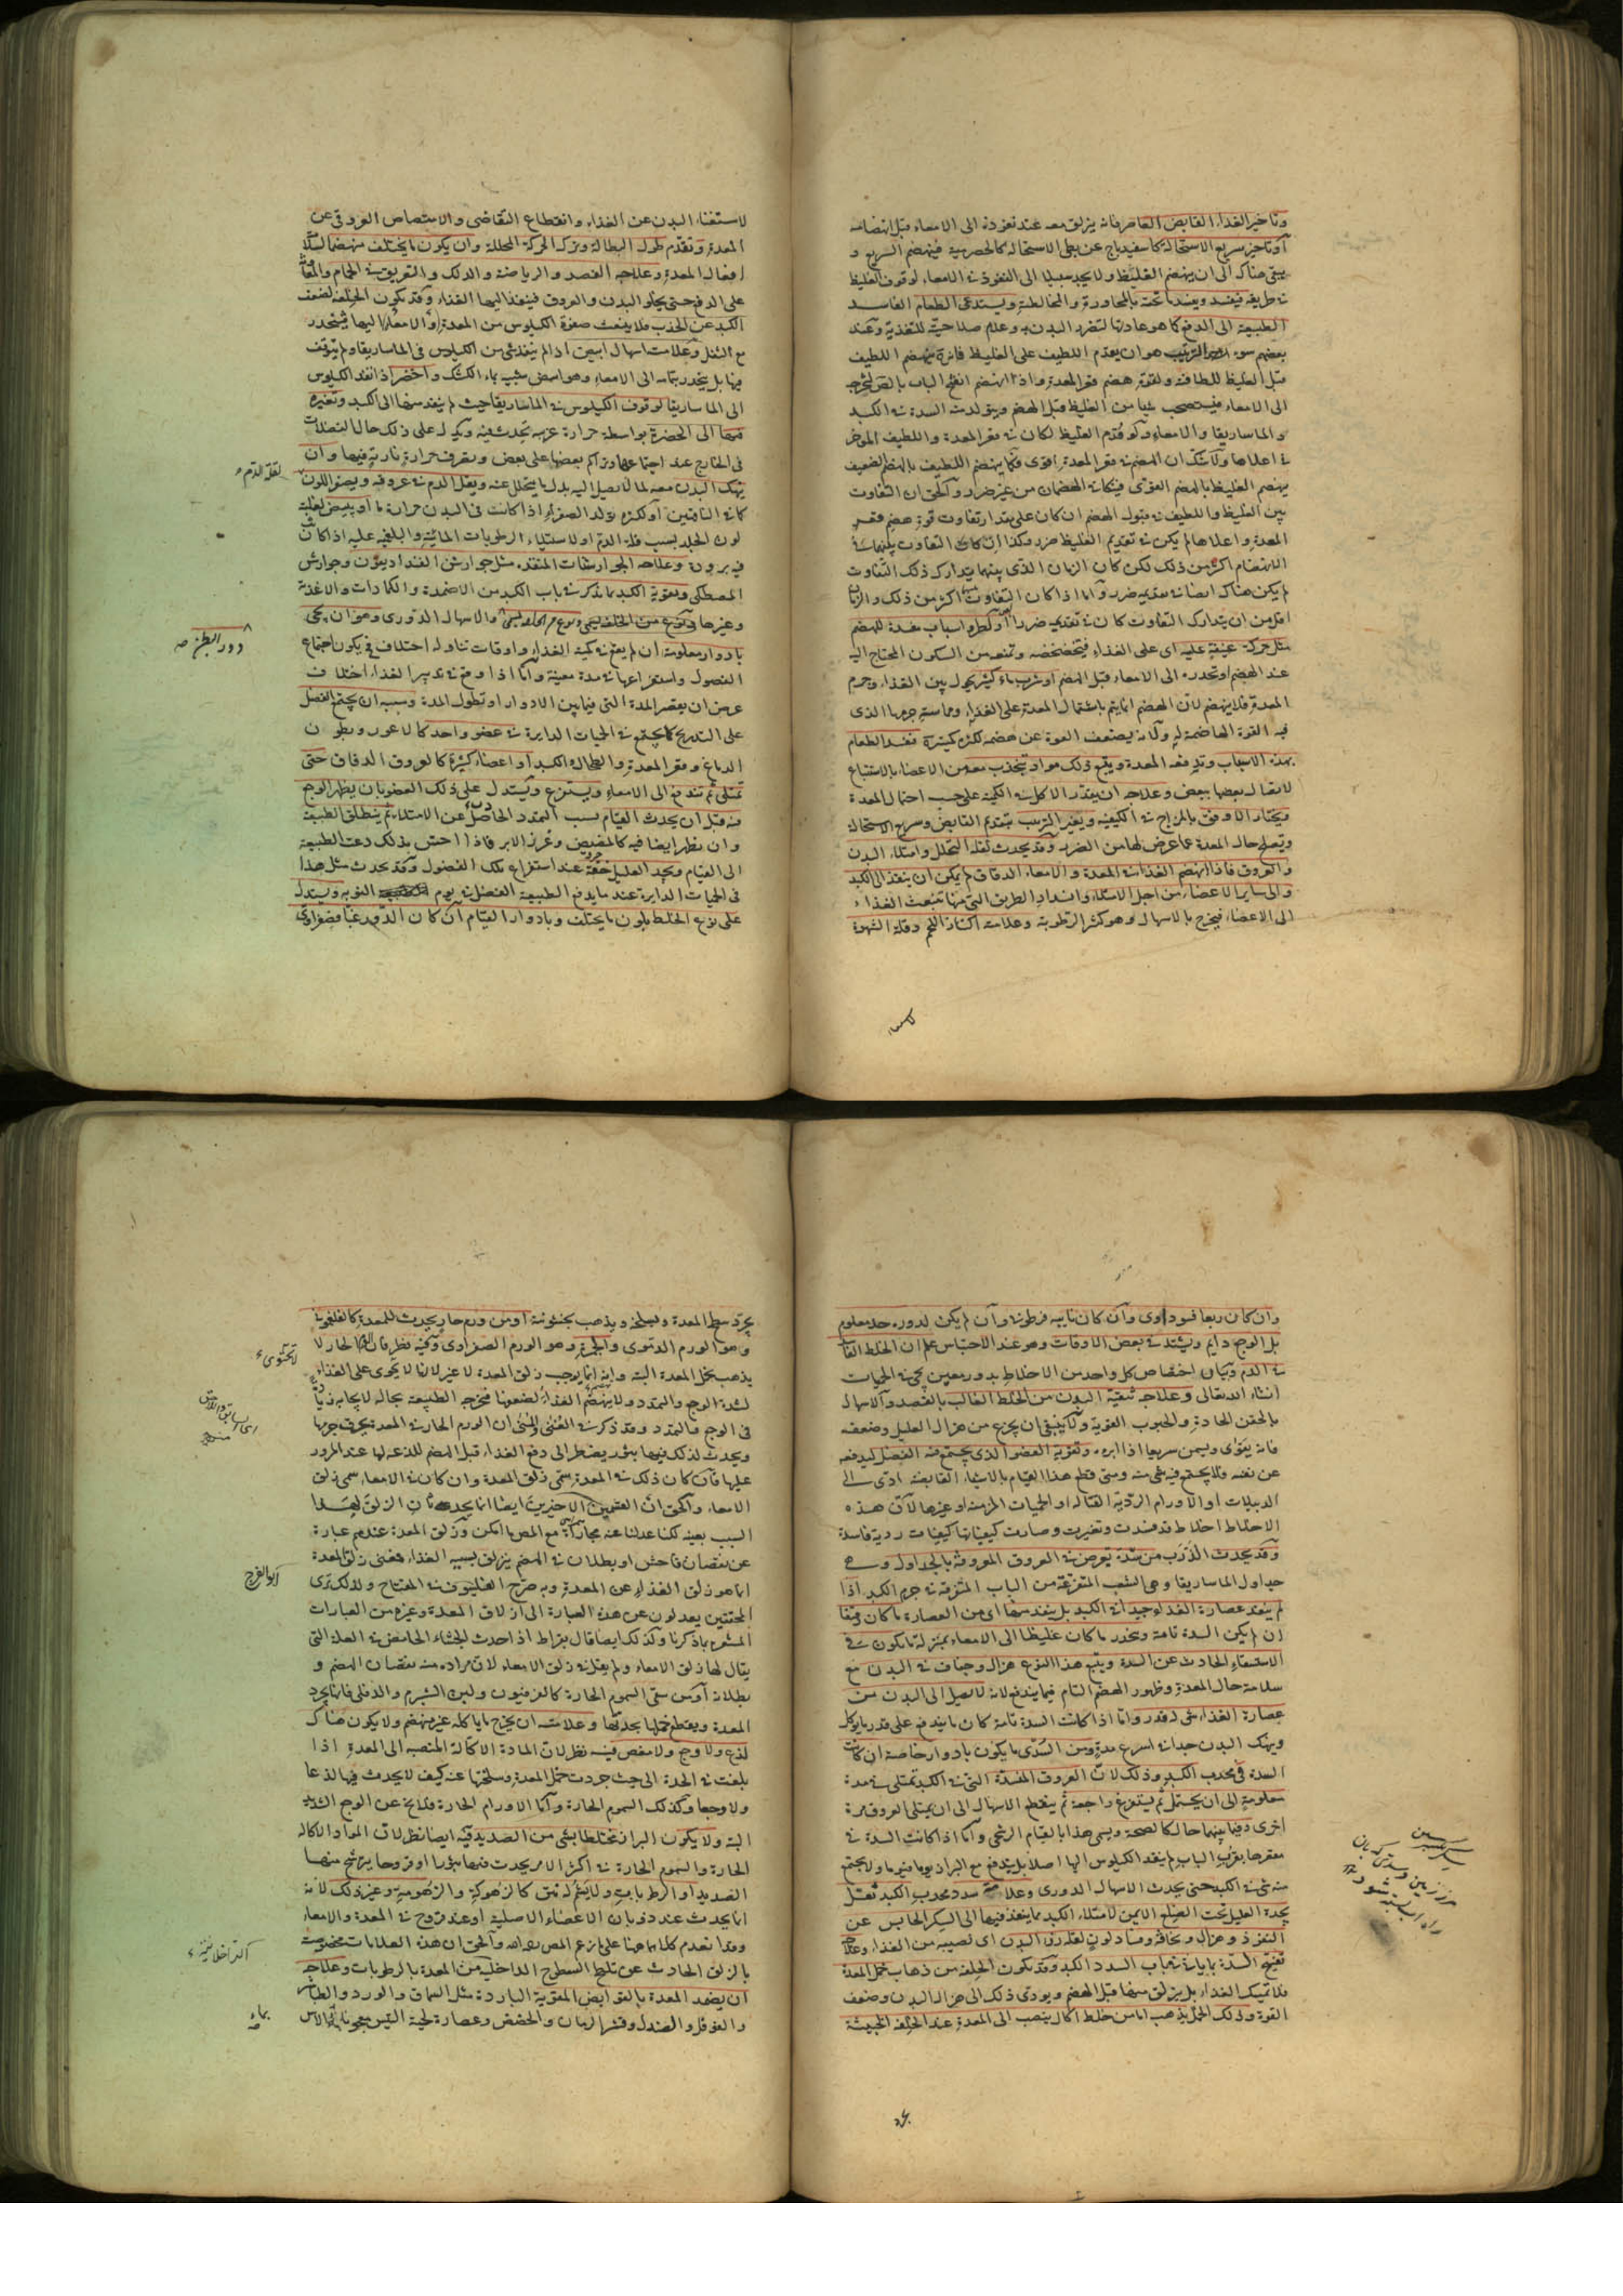 وتاخير الغذاء القابض العاصر فانه يزلق معه عند نفوذه الى الامعاء قبل انهضامه
او تاخير سريع الاستحالة كاسفيدباج عن بطى الاستحالة كالحصرمية فينهضم السريع و
يبقى هناك الى ان ينهضم الغليظ ولا يجد سبيلا الى النفوذ فى الامعاء لوقوف الغليظ
فى طريقه فيفسد ويفسد ما تحته بالمجاورة والمخالطة ويستدعى الطعام الفاسد
الطبيعة الى الدفع كما هو عادتها لتضرر البدن به وعدم صلاحيته للتغذية وعند
بعضهم سوء الترتيب هو ان يقدم اللطيف على الغليظ فانه ينهضم اللطيف
قبل الغليظ للطافته ولقوة هضم قعر المعدة واذا انهضم انفتح الباب بالقصر ليخرج
الى الامعاء فيستصحب شيئا من الغليظ قبل الهضم ويتولد منه السدة فى الكبد
والماساريقا والامعاء ولو قدم الغليظ لكان فى قعر المعدة واللطيف الموخر
فى اعلاها ولا شك ان الهضم فى قعر المعدة اقوى فكما ينهضم اللطيف بالهضم الضعيف
ينهضم الغليظ بالهضم القوى فيتكافا الهضمان من غير ضرر والحق ان التفاوت
بين الغليظ واللطيف فى قبول الهضم ان كان على مقدار تفاوت قوة هضم قعر
المعدة واعلاها لم يكن فى تقديم الغليظ ضرر وكذا ان كان التفاوت بينهما فى
الانهضام اكثر من ذلك لكن كان الزمان الذى بينهما يتدارك ذلك التفاوت
لم يكن هناك ايضا فى تقديمه ضرر واما اذا كان التفاوت اكثر من ذلك والزمان
اقل من ان يتدارك التفاوت كان فى تقديمه ضرر او لطرو اسباب مفسدة للهضم
مثل حركة عنيفة عليه اى على الغذاء فيخضخضه وتمنعه من السكون المحتاج اليه
عند الهضم او تحدره الى الامعاء قبل الهضم او شرب ماء كثير يحول بين الغذاء وجرم
المعدة فلا ينهضم لان الهضم انما يتم باشتمال المعدة على الغذاء ومماسته جرمها الذى
فيه القوة الهاضمة له ولانه يضعف القوة عن هضمه لكثرة كميته فيفسد الطعام
بهذه الاسباب وتدفعه المعدة ويتبع ذلك مواد ينجذب معه من الاعضاء بالاستتباع
لاتصال بعضها ببعض وعلاجه ان يقدر الاكل فى الكمية على حسب احتمال المعدة
ويختار الاوفق بالمزاج فى الكيفية ويغير الترتيب بتقديم القابض وسريع الاستحالة
وتصلح حال المعدة عما عرض لها من الضرر وقد يحدث لقلة التحلل وامتلاء البدن
والعروق فاذا انهضم الغذاء فى المعدة والامعاء الدقاق لم يمكن ان ينفذ الى الكبد
والى ساير الاعضاء من اجل الامتلاء وانسداد الطريق التى منها تنبعث الغذاء
الى الاعضاء فيخرج بالاسهال وهو كثير الرطوبة وعلامته اكتناز اللحم وقلة الشهوة
لاستغناء البدن عن الغذاء وانقطاع التقاضى والامتصاص العروقى عن
المعدة وتقدم طول البطالة وترك الحركة المحللة وان يكون ما يختلف منهضما لسلامة
افعال المعدة وعلاجه الفصد والرياضة والدلك والتعريق فى الحمام والمعاونة
على الدفع حتى يخلو البدن والعروق فينفذ اليها الغذاء وقد يكون الخلفة لضعف
الكبد عن الجذب فلا ينبعث صفوة الكيلوس من المعدة والامعاء اليها فينحدر
مع الثفل وعلامته اسهال ابيض اذا لم ينفذ شى من الكيلوس فى الماساريقا ولم يتوقف
فيها بل ينحدر بتمامه الى الامعاء وهو ابيض شبيه بماء الكشك واخضر اذا نفذ الكيلوس
الى الماساريقا لوقوف الكيلوس فى الماساريقا حيث لم ينفذ منها الى الكبد وتغيره
فيها الى الخضرة بواسطة حرارة غريبة تحدث فيه ويدل على ذلك حال الفضلات
فى الخارج عند اجتماعها وتراكم بعضها على بعض وتعرف حرارة نارية فيها وان
ينهك البدن معه لما لا يصل اليه بدل ما يتحلل عنه ويقل الدم فى عروقه ويصفر اللون
لقلة الدم
كما فى الناقهين او لكثرة تولد الصفراء اذا كانت فى البدن حرارة ما او يبيض لغلبة
لون الجلد بسبب قلة الدم او لاستيلاء الرطوبات المائية والبلغمية عليه اذا كان
فيه برودة وعلاجه الجوارشنات المنفذة مثل جوارشن الفنداديقون وجوارش
المصطكى وتقوية الكبد بما يذكر فى باب الكبد من الاضمدة والكمادات والاغذية
وغيرها والاسهال الدورى وهو ان يجى
دور البطن صه
بادوار معلومة ان لم يقع فى كمية الغذاء واوقات تناوله اختلاف فيكون اجتماع
الفضول واستفراغها فى مدة معينة واما اذا وقع فى تدبير الغذاء اختلاف
عرض ان يقصر المدة التى فيما بين الادوار او تطول المدة وسببه ان يجتمع الفضل
على التدريج كما يجتمع فى الحميات الدايرة فى عضو واحد كالاعور وبطون
الدماغ وقعر المعدة والطحال والكبد او اعضاء كثيرة كالعروق الدقاق حتى
تمتلى ثم تندفع الى الامعاء ويستفرغ ويستدل على ذلك العضو بان يظهر الوجع
فيه قبل ان يحدث القيام بسبب التمدد الحاصل عن الامتلاء ثم ينطلق الطبيعة
وان يظهر ايضا فيه كالمغيص وغرز الابر فاذا احس بذلك دعت الطبيعة
الى القيام ويجد العليل خفة عند استفراغ تلك الفضول وقد يحدث مثل هذا
فى الحميات الدايرة عند ما يدفع الطبيعة الفضل فى يوم النوبة ويستدل
على نوع الخلط بلون ما يختلف وبادوار القيام ان كان الدور غبا فصفراوى
وان كان ربعا فسوداوى وان كان نايبه فرطوبة وان لم يكن لدوره حد معلوم
بل الوجع دايم ويشتد فى بعض الاوقات وهو عند الاحتباس علم ان الخلط الغالب
فى الدم وبيان اختصاص كل واحد من الاخلاط بدور معين يجى فى الحميات
انشاء الله تعالى وعلاجه تنقية البدن من الخلط الغالب بالفصد والاسهال
بالحقن الحادة والحبوب القوية ولا ينبغى ان يجزع من هزال العليل وضعفه
فانه يقوى ويسمن سريعا اذا ابرء وتقوية العضو الذى يجتمع فيه الفضل ليدفعه
عن نفسه فلا يجتمع فيه شى منه ومتى قطع هذا القيام بالاشياء القابضة ادى الى
الدبيلات او الاورام الردية القتالة او الحميات المزمنة او غيرها لان هذه
الاخلاط اخلاط قد فسدت وتغيرت وصارت كيفياتها كيفيات ردية فاسدة
وقد يحدث الذرب من سدة يعرض فى العروق المعروفة بالجداول وهى
جداول الماساريقا وهى الشعب المتفرعة من الباب المتفرقة فى جرم الكبد اذا
لم ينفذ عصارة الغذاء جيدا فى الكبد بل ينفذ منها اى من العصارة ما كان رقيقا
ان لم يكن السدة تامة وينحدر ما كان غليظا الى الامعاء بمنزلة ما يكون فى
الاستسقاء الحادث عن السدة ويتبع هذا النوع هزال وجفاف فى البدن مع
سلامة حال المعدة وظهور الهضم التام فيما يندفع لانه لا يصل الى البدن من
عصارة الغذاء شى له قدر واما اذا كانت السدة تامة كان ما يندفع على قدر ما يوكل
وينهك البدن جدا فى اسرع مدة ومن السددى ما يكون بادوار خاصة ان كانت
السدة فى محدب الكبد وذلك لان العروق المنسدة التى فى الكبد تمتلى فى مدة
معلومة الى ان يحتمل ثم يستفرغ راجعة ثم ينقطع الاسهال الى ان يمتلى العروق مرة
اخرى وفيما بينهما حال كالصحة ويسمى هذا بالقيام الرجعى واما اذا كانت السدة فى
مقعرها بقرب الباب لم ينفذ الكيلوس اليها اصلا بل يندفع مع البراز يوما فيوما ولا يجتمع
منه شى فى الكبد حتى يحدث الاسهال الدورى وعلامة سدد محدب الكبد ثقل
يجده العليل تحت الضلع الايمن لامتلاء الكبد مما ينفذ فيها الى السكر الحابس عن
النفوذ وهزال ونحافة وفساد لون لقلة رزق البدن اى نصيبه من الغذاء وعلاجه
تفتيح السدة بما يأتى فى باب السدد الكبد وقد يكون الخلفة من ذهاب خمل المعدة
فلا تمسك الغذاء بل يزلق منها قبل الهضم ويودى ذلك الى هزال البدن وضعف
القوة وذلك الخمل يذهب اما من خلط اكال ينصب الى المعدة عند الخلفة الخبيثة
يجرد سطح المعدة ويسلخه ويذهب بخشونته او من ورم حار يحدث للمعدة كالفلغمونى
وهو الورم الدموى والحمرة وهو الورم الصفراوى وفيه نظر فان الورم الحار لا
يذهب بخمل المعدة البتة وانما يوجب زلق المعدة لا غير لانها لا تحتوى على الغذاء
تحتوى
لشدة الوجع والتمدد ولا ينهضم الغذاء لضعفها فيخرجه الطبيعة بحاله لايجابه زيادة
فى الوجع والتمدد وقد ذكر فى الغنى والمنى ان الورم الحار فى المعدة يحرق جرمها
ويحدث لذلك فيها بثور يضطر الى دفع الغذاء قبل الهضم للذعه لها عند المرور
عليها فان كان ذلك فى المعدة سمى زلق المعدة وان كان فى الامعاء سمى زلق
الامعاء والحق ان القسمين الاخيرين ايضا انما يحدثان الزلق لهذا
السبب بعينه لكنا عدلنا عنه مجازاة مع المص ما امكن وزلق المعدة عندهم عبارة
عن نقصان فاحش او بطلان فى الهضم يزلق بسببه الغذاء فمعنى زلق المعدة
انما هو زلق الغذاء عن المعدة وبه صرح الفيلسوف فى المفتاح ولذلك ترى
ابو الفرج
المحققين يعدلون عن هذه العبارة الى ازلاق المعدة وغيره من العبارات
المشعرة بما ذكرنا وكذلك ايضا قال بقراط اذا حدث الجشاء الحامض فى العلة التى
يقال لها زلق الامعاء ولم يقل فى زلق الامعاء لان مراده منه نقصان الهضم و
بطلانه او من سقى السموم الحارة كالفرفيون ولبن الشبرم والدفلى فانها يجرد
المعدة ويقطع خملها بحدتها وعلامته ان يخرج ما ياكله غير منهضم ولا يكون هناك
لذع ولا وجع ولا مغص فيه نظر لان المادة الاكالة المنصبة الى المعدة اذا
بلغت فى الحدة الى حيث جردت خمل المعدة وسلختها عنه كيف لا يحدث فيها لذعا
ولا وجعا وكذلك السموم الحارة واما الاورام الحارة فلا يخ عن الوجع الشديد
البتة ولا يكون البراز مختلطا بشى من الصديد فيه ايضا نظر لان المواد الاكالة
الحارة والسموم الحارة فى اكثر الامر يحدث فيها بثورا او قروحا يترشح منها
الصديد او الرطوبات ولا يشم له نتن كالزهوكة والزهومة وغير ذلك لانه
انما يحدث عند ذوبان الاعضاء الاصلية او عند قروح فى المعدة والامعاء
وقد تقدم كلها ههنا على ما زعم المص رحمه الله والحق ان هذه العلامات مخصوصة
بالزلق الحادث عن تملح السطوح الداخلة من المعدة بالرطوبات وعلاجه
ان يضمد المعدة بالقوابض المقوية الباردة مثل السماق والورد والطباشير
والفوفل والصندل وقشر الرمان والحضض وعصارة لحية التيس معجونة بماء الاس
بماء